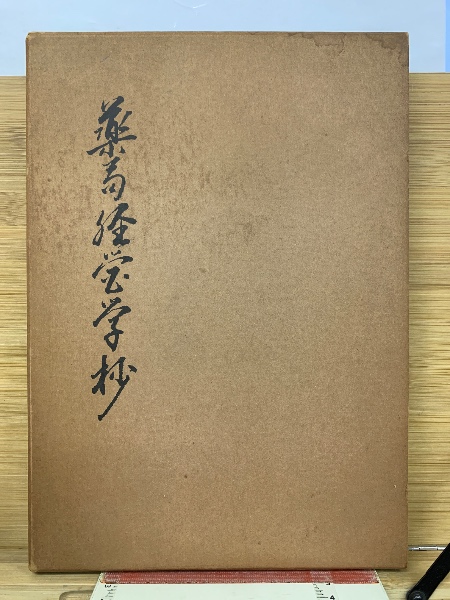 薬局経営学抄